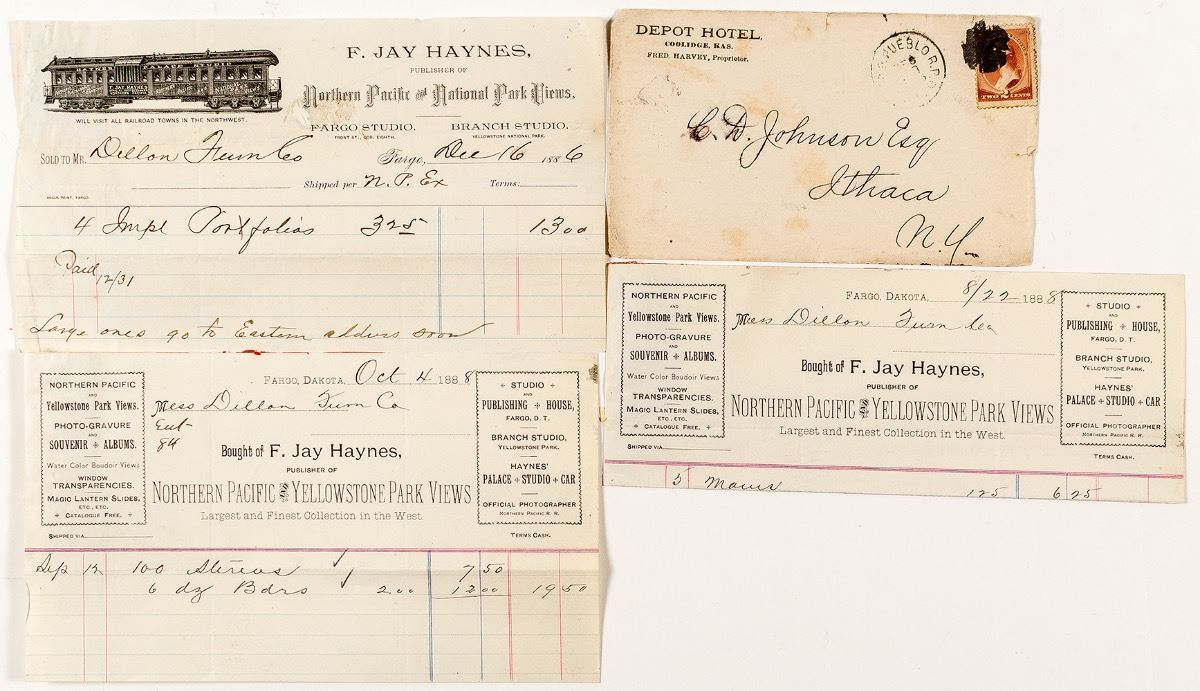 F. JAY HAYNES,
PUBLISHER OF
Northern Pacific and National Park Views.
WILL VISIT ALL RAILROAD TOWNS IN THE NORTHWEST.
FARGO STUDIO. BRANCH STUDIO.
FRONT ST., COR. EIGHTH. YELLOWSTONE NATIONAL PARK.
SOLD TO MR. Dillon Furn Co Fargo, Dec 16 1886
Shipped per N.P. Ex Terms:
ARGUS PRINT, FARGO.
4 Impl Portfolios 325 1300
Paid 12/31
Large ones go to Eastern soon
DEPOT HOTEL,
COOLIDGE, KAS.
FRED. HARVEY, Proprietor.
PUEBLO R.P.O.
TWO 2 CENTS
C. D. Johnson Esq
Ithaca
N.Y.
NORTHERN PACIFIC
AND
Yellowstone Park Views.
PHOTO-GRAVURE
AND
SOUVENIR + ALBUMS.
Water Color Boudoir Views
WINDOW
TRANSPARENCIES.
MAGIC LANTERN SLIDES,
ETC., ETC.
+ CATALOGUE FREE. +
SHIPPED VIA
FARGO, DAKOTA, Oct 4 1888
Mess Dillon Furn Co
84
Bought of F. Jay Haynes,
PUBLISHER OF
NORTHERN PACIFIC AND YELLOWSTONE PARK VIEWS
Largest and Finest Collection in the West.
+ STUDIO +
AND
PUBLISHING + HOUSE,
FARGO, D. T.
BRANCH STUDIO,
YELLOWSTONE PARK.
HAYNES'
PALACE + STUDIO + CAR
OFFICIAL PHOTOGRAPHER
NORTHERN PACIFIC R. R.
TERMS CASH.
Sep 12 100 Stereos 7 50
6 dz Bdrs 2 00 12 00 19 50
NORTHERN PACIFIC
AND
Yellowstone Park Views.
PHOTO-GRAVURE
AND
SOUVENIR + ALBUMS.
Water Color Boudoir Views
WINDOW
TRANSPARENCIES.
MAGIC LANTERN SLIDES,
ETC., ETC.
+ CATALOGUE FREE. +
SHIPPED VIA
FARGO, DAKOTA, 8/22 1888
Mess Dillon Furn
Bought of F. Jay Haynes,
PUBLISHER OF
NORTHERN PACIFIC AND YELLOWSTONE PARK VIEWS
Largest and Finest Collection in the West.
+ STUDIO +
AND
PUBLISHING + HOUSE,
FARGO, D. T.
BRANCH STUDIO,
YELLOWSTONE PARK.
HAYNES'
PALACE + STUDIO + CAR
OFFICIAL PHOTOGRAPHER
NORTHERN PACIFIC R. R.
TERMS CASH.
5 125 6 25